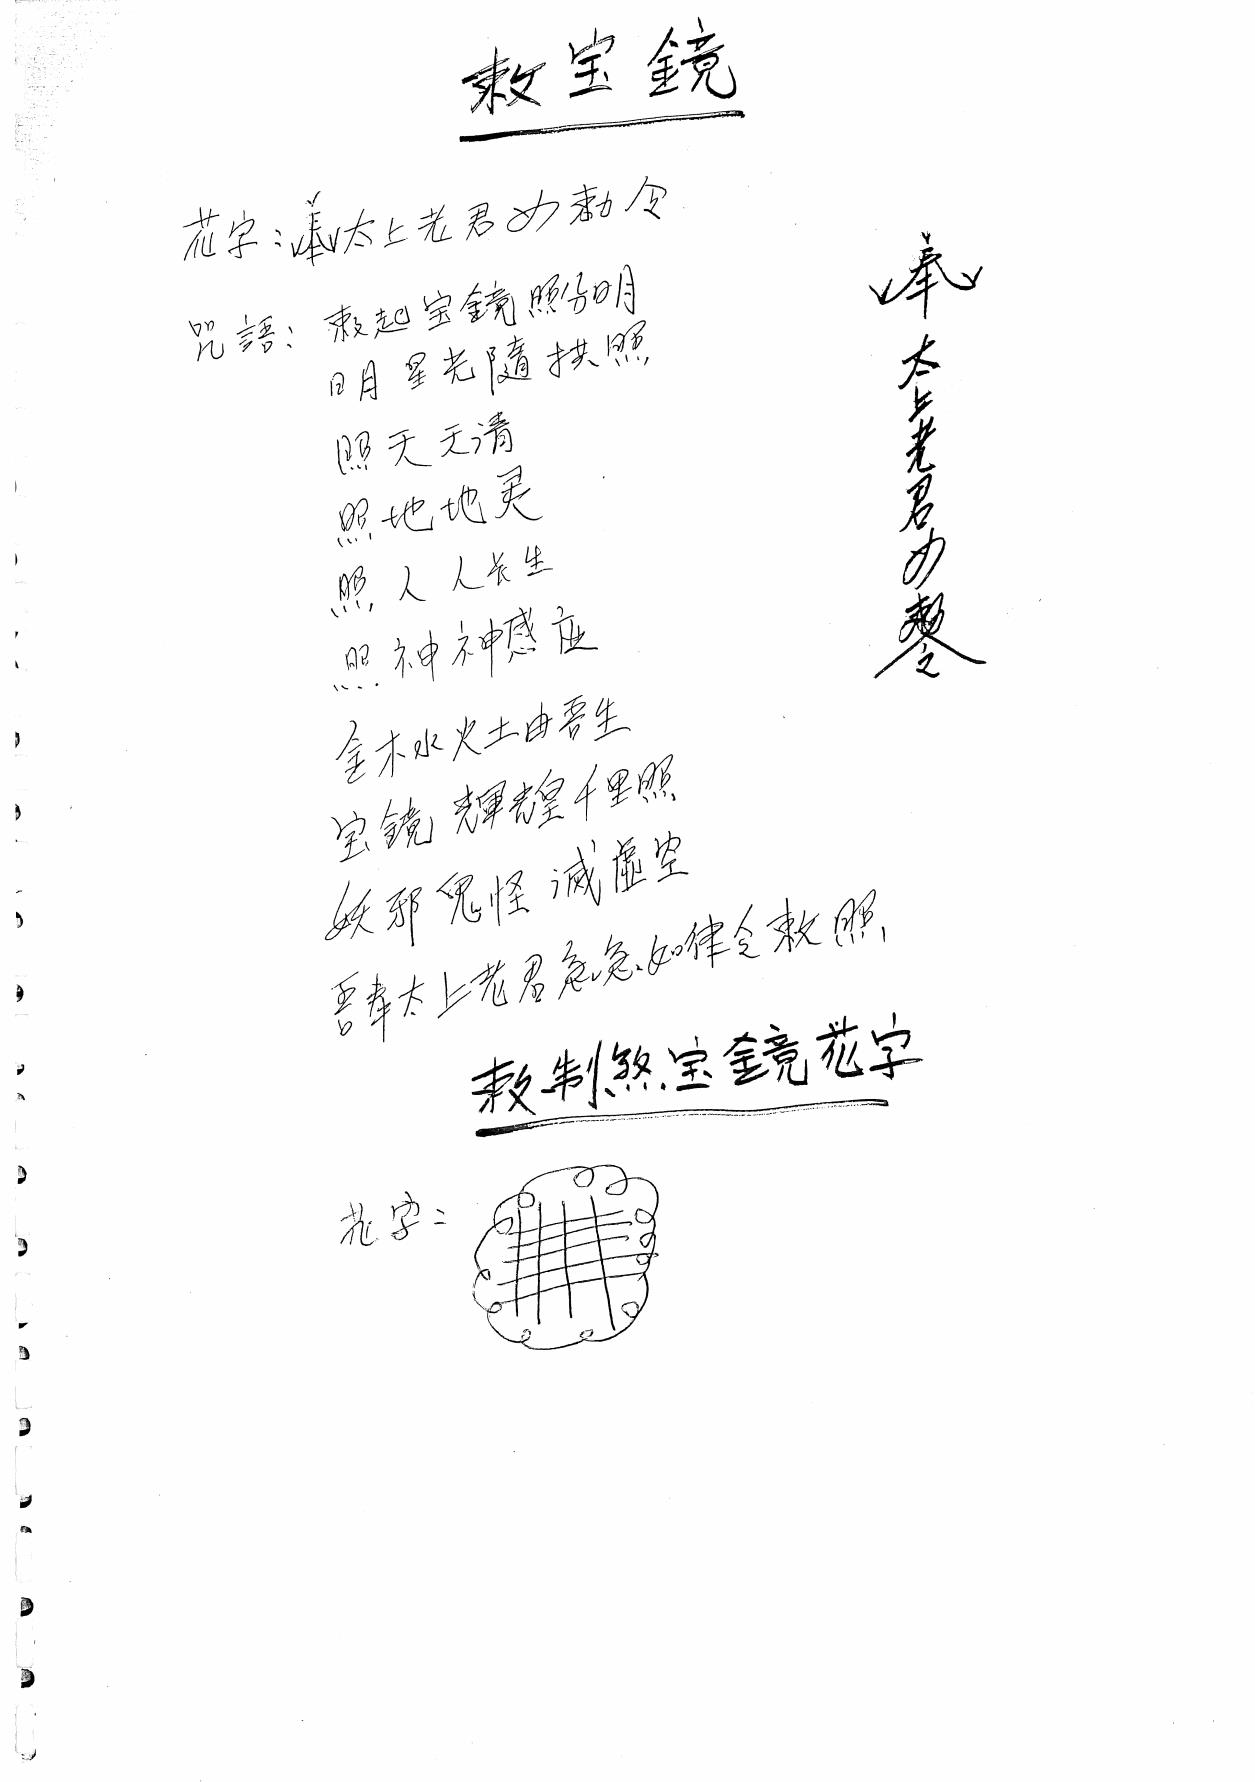 敕宝鏡
花字：奉太上老君勅令
咒語：敕起宝鏡照分明
日月星光隨拱照
照天天清
照地地灵
照人人长生
照神神感应
金木水火土由吾生
宝鏡輝煌千里照
妖邪鬼怪滅虛空
吾奉太上老君急急如律令敕照
奉太上老君勅令
敕制煞宝鏡花字
花字：